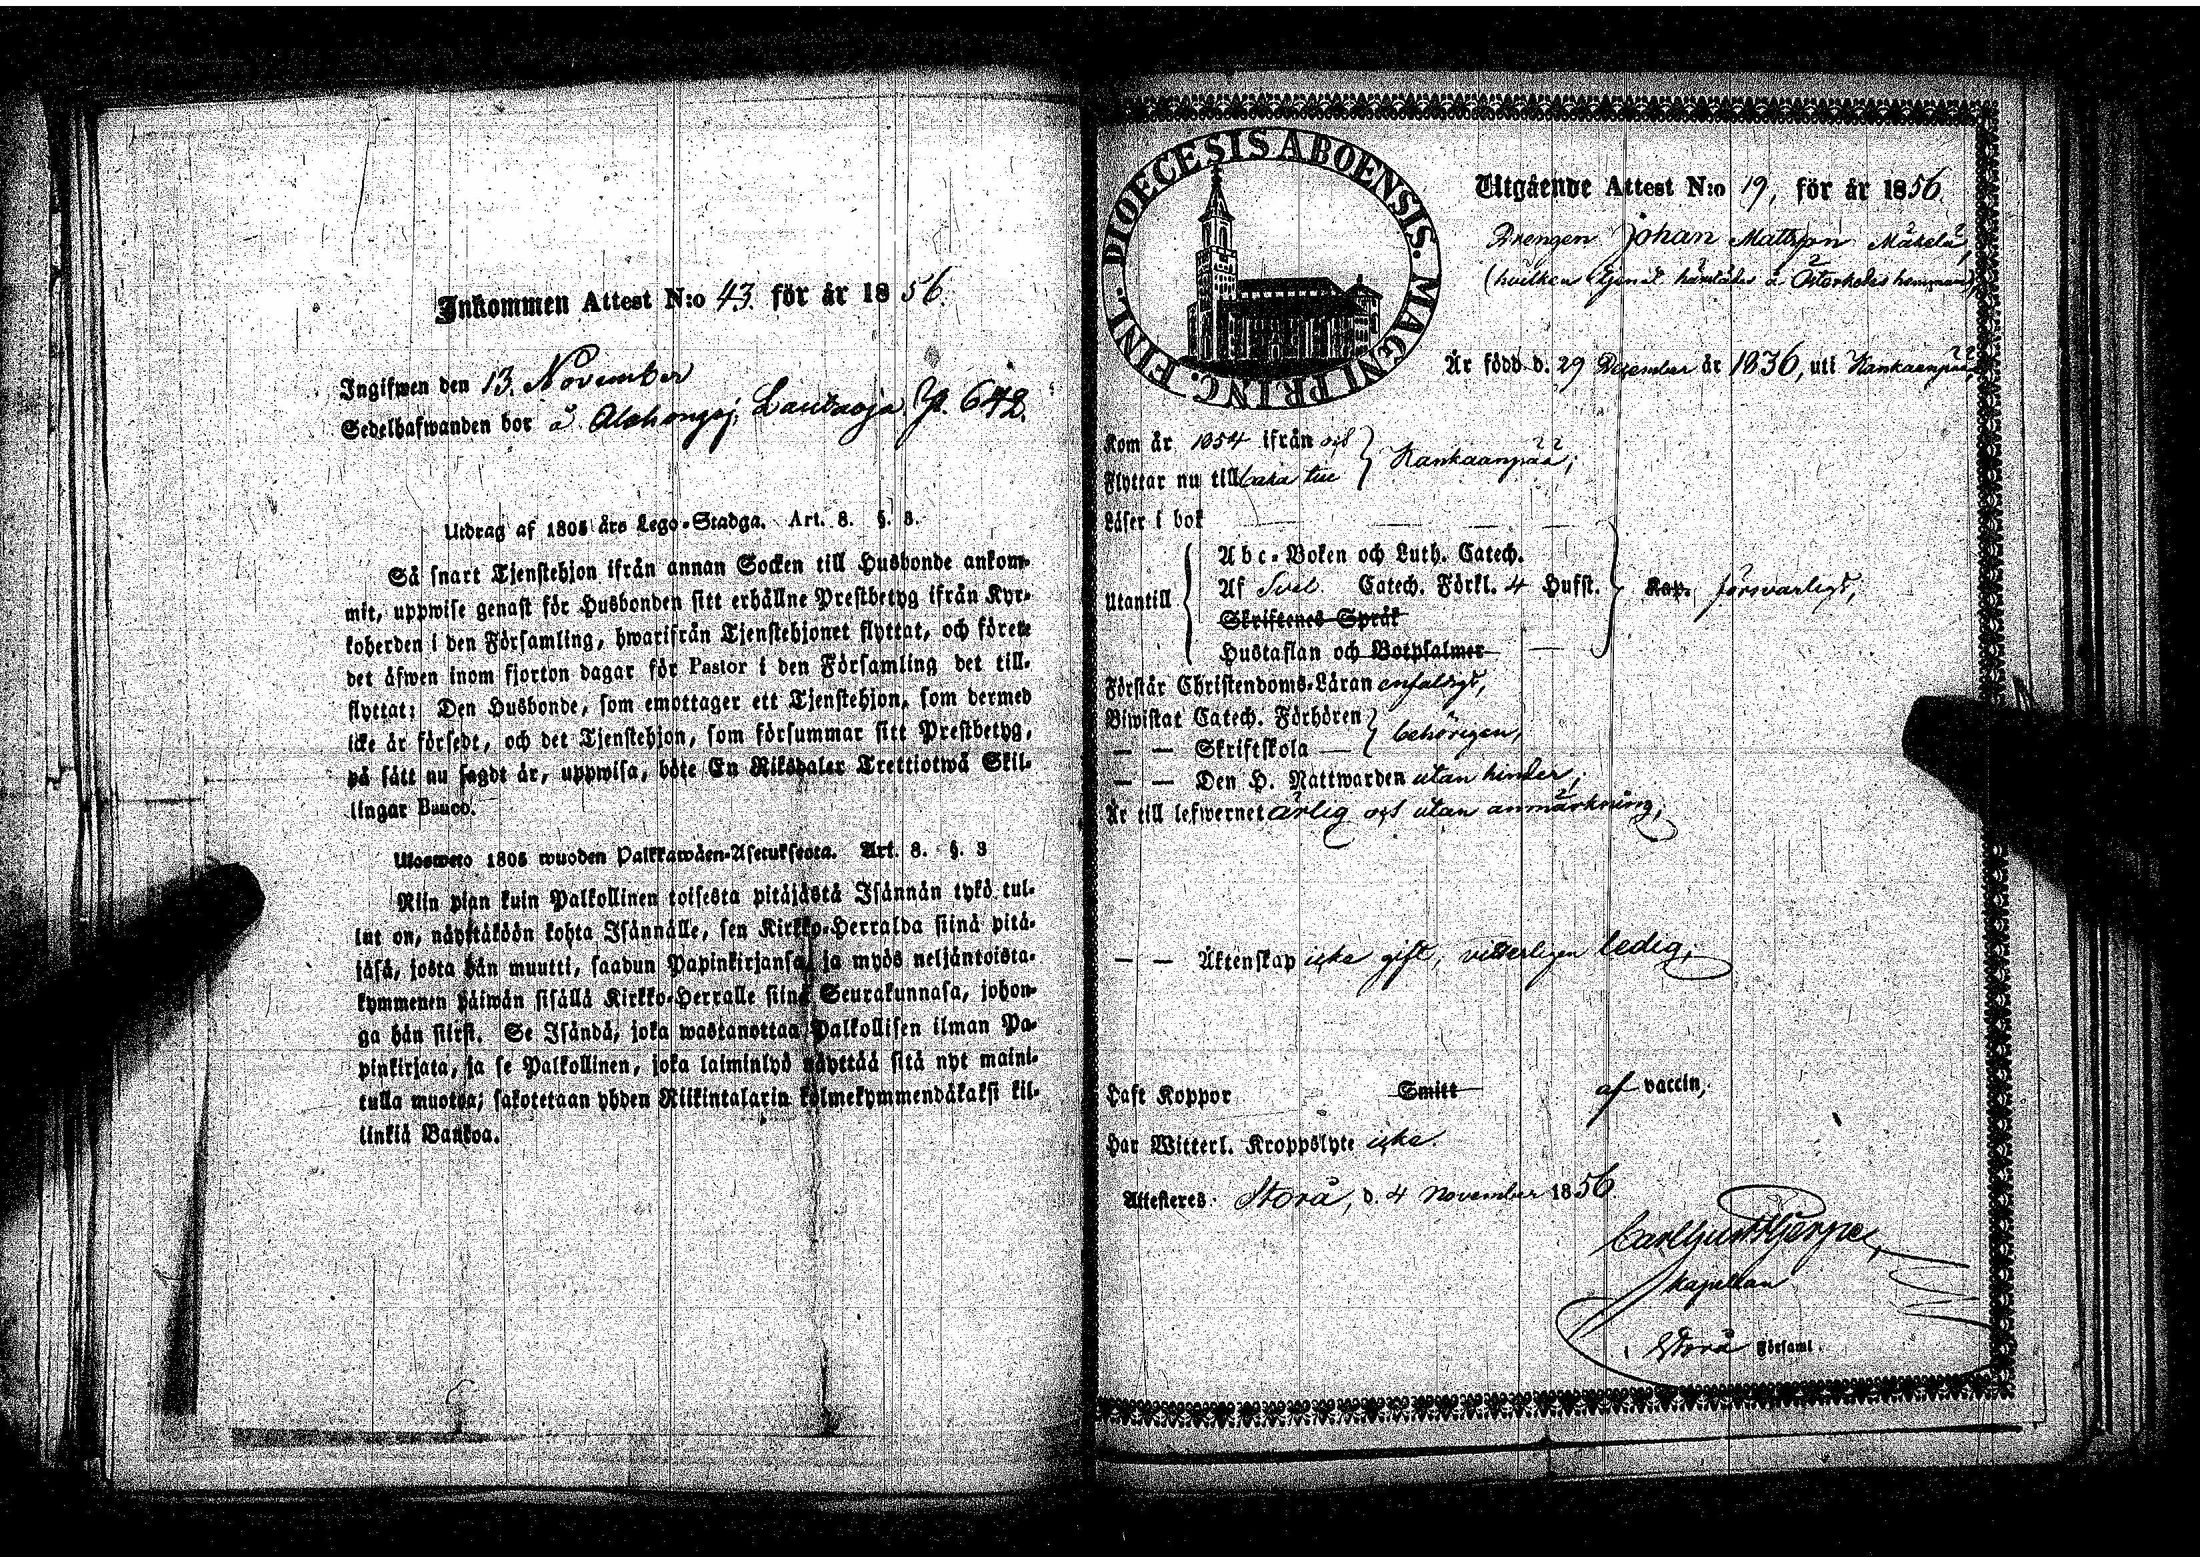 Inkommen Attest N:o 43. för år 1856.
Ingifwen den 13. November
Sedelhafwanden bor å Alahongoj. Lautaoja. P. 642.
Utdrag af 1805 års Lego-Stadga. Art. 8. §. 3.
Så snart Tjenstehjon ifrån annan Socken till Husbonde ankom-
mit, uppwise genast för Husbonden sitt erhållne Prestbetyg ifrån Kyr-
koherden i den Församling, hwarifrån Tjenstehjonet flyttat, och förete
det äfwen inom fjorton dagar för Pastor i den Församling det till-
flyttat: Den Husbonde, som emottager ett Tjenstehjon, som dermed
icke är försedt, och det Tjenstehjon, som försummar sitt Prestbetyg,
på sätt nu sagdt är, uppwisa, böte En Riksdaler Trettiotwå Skil-
lingar Banco.
Uloswето 1805 wuoden Palkkawäen-Asetuksesta. Art. 8. §. 3
Niin pian kuin Palkollinen toisesta pitäjästä Isännän tykö tul-
lut on, näyttäköön kohta Isännälle, sen Kirkko-Herralda siinä pitä-
jäsä, josta hän muutti, saadun Papinkirjansa, ja myös neljäntoista-
kymmenen päiwän sisällä Kirkko-Herralle siinä Seurakunnasa, johon-
ga hän siirst. Se Isändä, joka wastanottaa Palkollisen ilman Pa-
pinkirjata, ja se Palkollinen, joka laiminlyö näyttää sitä nyt maini-
tulla muotoa; sakotetaan yhden Riikintalarin kolmekymmendäkaksi kil-
linkiä Bankoa.
DIOECESIS ABOENSIS. MAGNI PRINC. FINL.
Utgående Attest N:o 19, för år 1856.
Drengen Johan Mattsson Mäkelä,
(hvilken tjenst å hemman),
Är född d. 29 December år 1836, uti Kankaanpää,
Kom år 1854 ifrån och
Flyttar nu tillbaka till } Kankaanpää;
Läser i bok — — — —
Abc-Boken och Luth. Catech.
Utantill Af Svel. Catech. Förkl. 4 Hufst. Kap. försvarligt,
Skriftenes Språk
Hustaflan och Botpsalmer —
Förstår Christendoms-Läran enfaldigt,
Biwistat Catech. Förhören
— — Skriftskola — } behörigen,
— — Den H. Nattwarden utan hinder,
Är till lefwernet ärlig och utan anmärkning,
— — Äktenskap icke gift, vitterligen ledig,
Haft Koppor Smitt af vaccin,
Har Witterl. Kroppslyte icke.
Attesteras Storå, d. 4 November 1856.
Carl Gust Hjerppe,
Kapellan
i Storå Församl.